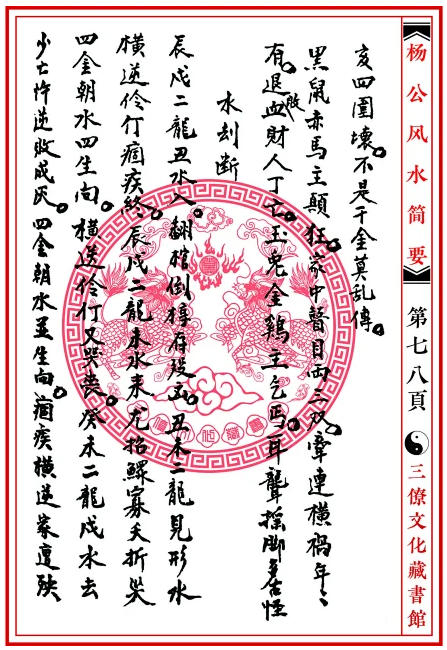 杨公风水简要
第七八頁
三僚文化藏書館
亥四圍壞。不是千金莫乱傳。
黑鼠赤馬主顛狂。家中瞽目両三双。牽連橫禍年々
有。退敗血財人丁亡。玉兎金鷄主乞丐。耳聾搖脚多怪
水刦断
辰戌二龍丑水入。翻棺倒槨存殁立。丑未二龍見形水
橫逆伶仃痼疾終。辰戌二龍未水来。尤招鰥寡夭折哭
四金朝水四生向。橫逆伶仃又哭喪。癸未二龍戌水去
少亡忤逆敗成灰。四金朝水五生向。痼疾橫逆家遭殃